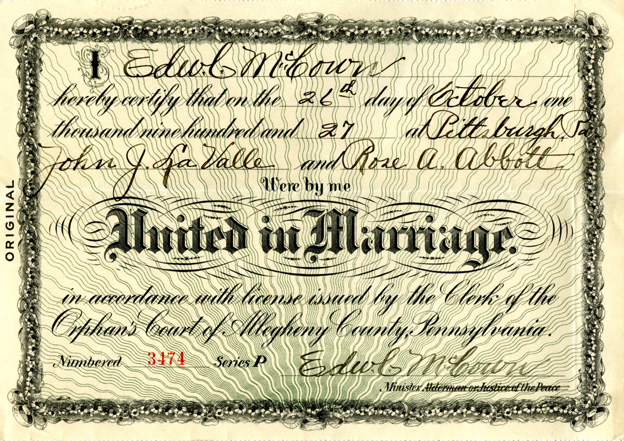 I Edw. C. McCown
hereby certify that on the 26th day of October one
thousand nine hundred and 27 at Pittsburgh, Pa
John J. La Valle and Rose A. Abbott
Were by me
United in Marriage.
in accordance with license issued by the Clerk of the
Orphan's Court of Allegheny County, Pennsylvania.
Numbered 3474 Series P Edw. C. McCown
Minister Alderman or Justice of the Peace
ORIGINAL